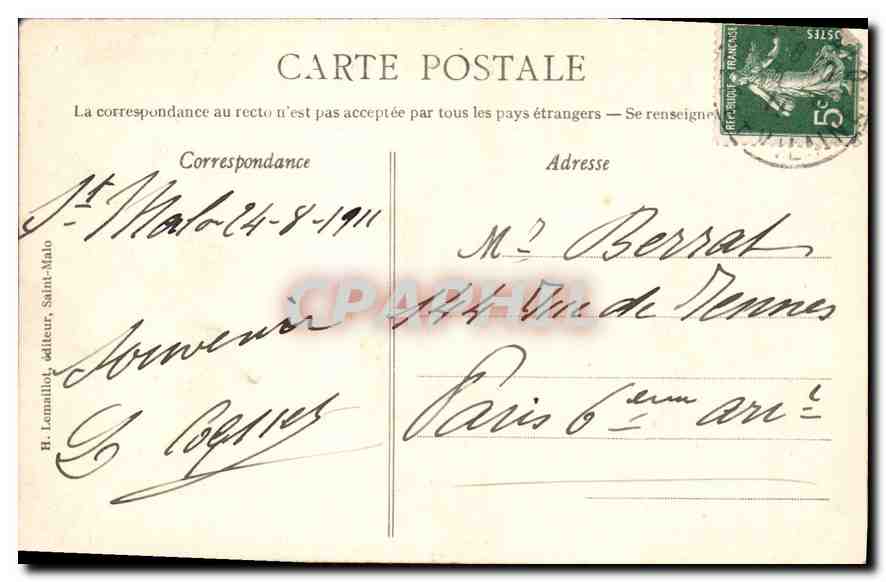 CARTE POSTALE
La correspondance au recto n'est pas acceptée par tous les pays étrangers — Se renseigne
Correspondance
St Malo 24-8-1911
Souvenir
H. Lemaillot, éditeur, Saint-Malo
Adresse
Mr Berrat
144 Rue de Rennes
Paris 6eme arrt
REPUBLIQUE FRANÇAISE
POSTES
5c
CPAPHIL